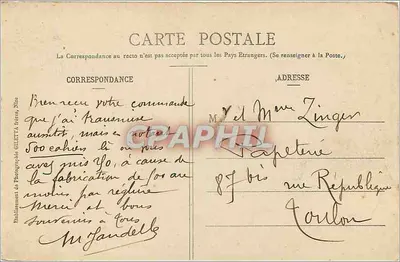 CARTE POSTALE
La Correspondance au recto n'est pas acceptée par tous les Pays Étrangers. (Se renseigner à la Poste.)
CORRESPONDANCE
Bien reçu votre commande
que j'ai transmise
aussitôt, mais en notant
500 cahiers
avez mis 40, à cause de
la fabrication de
moins par réglure
Merci et bons
souvenirs à tous
ADRESSE
M et Mme Zinger
Papeterie
87 bis rue République
Toulon
Etablissement de Photographie GILETTA frères, Nice
CPAPHIL